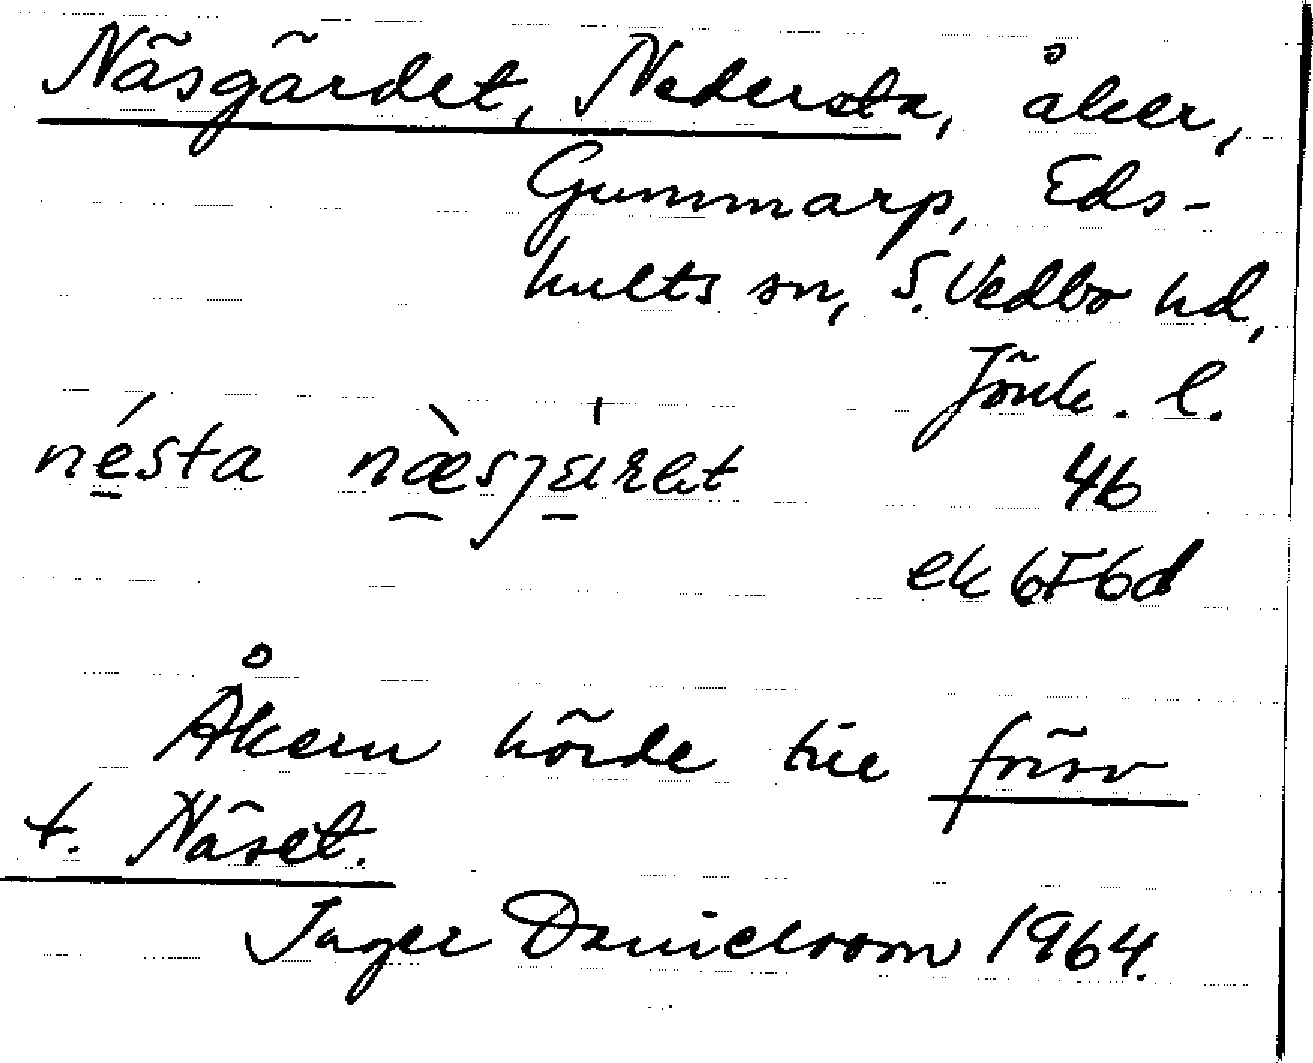 Näsgärdet, Nedersta, åker,
Gummarp, Eds-
hults sn, S. Vedbo hd,
Jönk. l.
nésta næ̀sjæ̍ret 46
ek 6F6d
Åkern hörde till förr
t. Näset.
Inger Danielsson 1964.